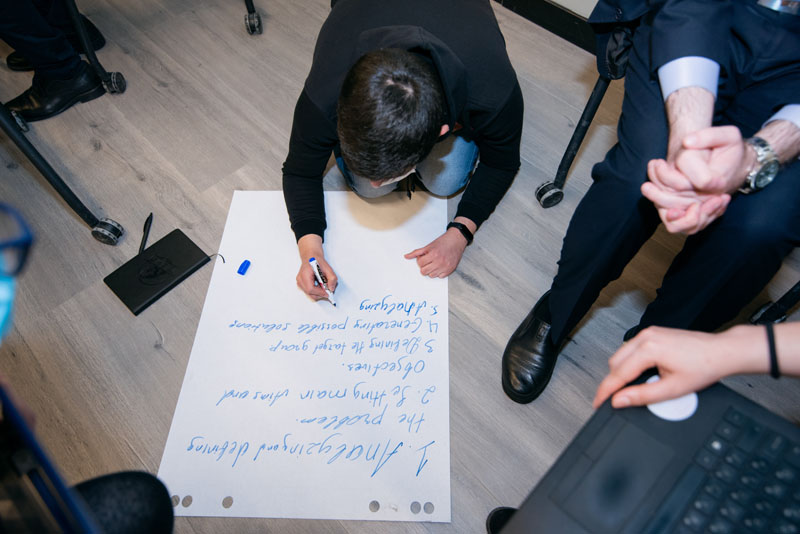 1. Analyzing and defining
the problem.
2. Setting main Aims and
Objectives.
3 Defining the target group
4. Generating possible solutions
5. Analyzing